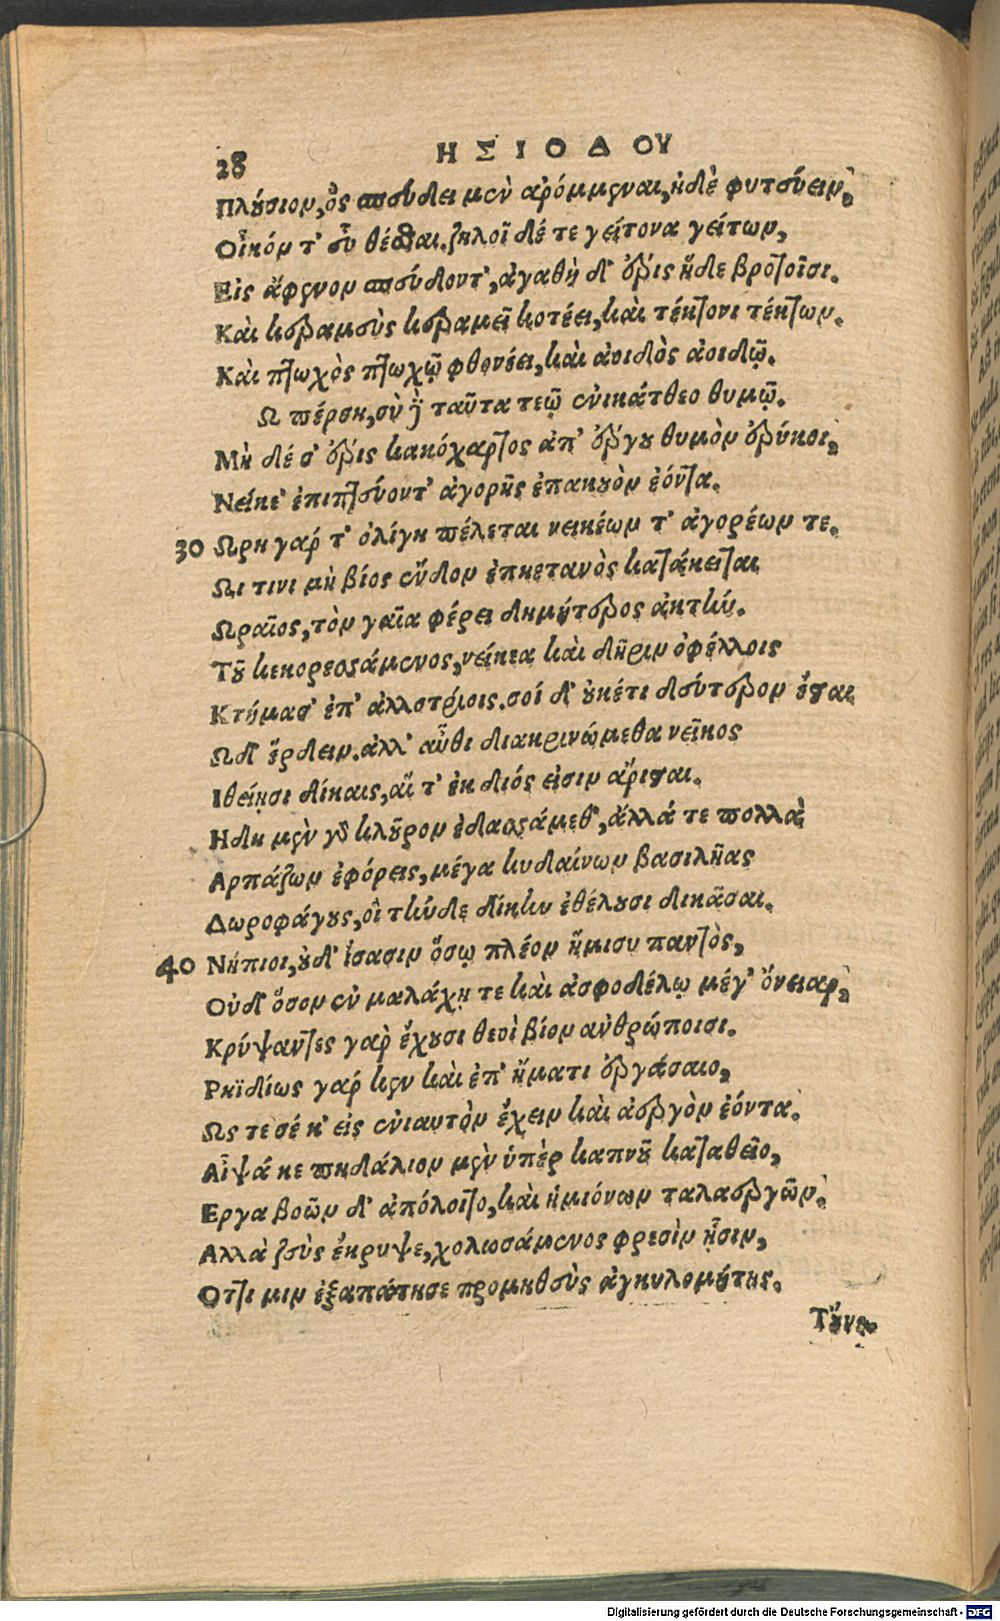 28 ΗΣΙΟΔΟΥ
Πλούσιον, ὃς σπεύδει μὲν ἀρόμμεναι, ἠδὲ φυτεύειν,
Οἶκόν τ' εὖ θέσθαι. ζηλοῖ δέ τε γείτονα γείτων,
Εἰς ἄφενον σπεύδοντ', ἀγαθὴ δ' ἔρις ἥδε βροτοῖσι.
Καὶ κεραμεὺς κεραμεῖ κοτέει, καὶ τέκτονι τέκτων.
Καὶ πτωχὸς πτωχῷ φθονέει, καὶ ἀοιδὸς ἀοιδῷ.
Ω πέρση, σὺ δὲ ταῦτα τεῷ ἐνικάτθεο θυμῷ.
Μὴ δέ σ' ἔρις κακόχαρτος ἀπ' ἔργου θυμὸν ἐρύκοι,
Νείκε' ἐπιπτεύοντ' ἀγορῆς ἐπακουὸν ἐόντα.
30 Ωρη γάρ τ' ὀλίγη πέλεται νεικέων τ' ἀγορέων τε.
Ωι τινι μὴ βίος ἔνδον ἐπηετανὸς κατάκειται
Ωραῖος, τὸν γαῖα φέρει δημήτερος ἀκτήν.
Τοῦ κεκορεσσάμενος, νείκεα καὶ δῆριν ὀφέλλοις
Κτήμασ' ἐπ' ἀλλοτρίοις. σοί δ' οὐκέτι δεύτερον ἔσται
Ωδ' ἔρδειν. ἀλλ' αὖθι διακρινώμεθα νεῖκος
Ιθείησι δίκαις, αἵ τ' ἐκ διός εἰσιν ἄρισται.
Ηδη μὲν γὰρ κλῆρον ἐδασσάμεθ', ἄλλά τε πολλὰ
Αρπάζων ἐφόρεις, μέγα κυδαίνων βασιλῆας
Δωροφάγους, οἳ τήνδε δίκην ἐθέλουσι δικᾶσαι.
40 Νήπιοι, οὐδ' ἴσασιν ὅσῳ πλέον ἥμισυ παντὸς,
Οὐδ' ὅσον ἐν μαλάχῃ τε καὶ ἀσφοδέλῳ μέγ' ὄνειαρ,
Κρύψαντες γὰρ ἔχουσι θεοὶ βίον ἀνθρώποισι.
Ρηϊδίως γάρ κεν καὶ ἐπ' ἤματι ἐργάσαιο,
Ως τε σέ κ' εἰς ἐνιαυτὸν ἔχειν καὶ ἀεργὸν ἐόντα.
Αἶψά κε πηδάλιον μὲν ὑπὲρ καπνοῦ καταθεῖο,
Εργα βοῶν δ' ἀπόλοιτο, καὶ ἡμιόνων ταλαεργῶν.
Αλλὰ ζεὺς ἔκρυψε, χολωσάμενος φρεσὶν ᾗσιν,
Οττι μιν ἐξαπάτησε προμηθεὺς ἀγκυλομήτης.
Τούνε-
Digitalisierung gefördert durch die Deutsche Forschungsgemeinschaft - DFG